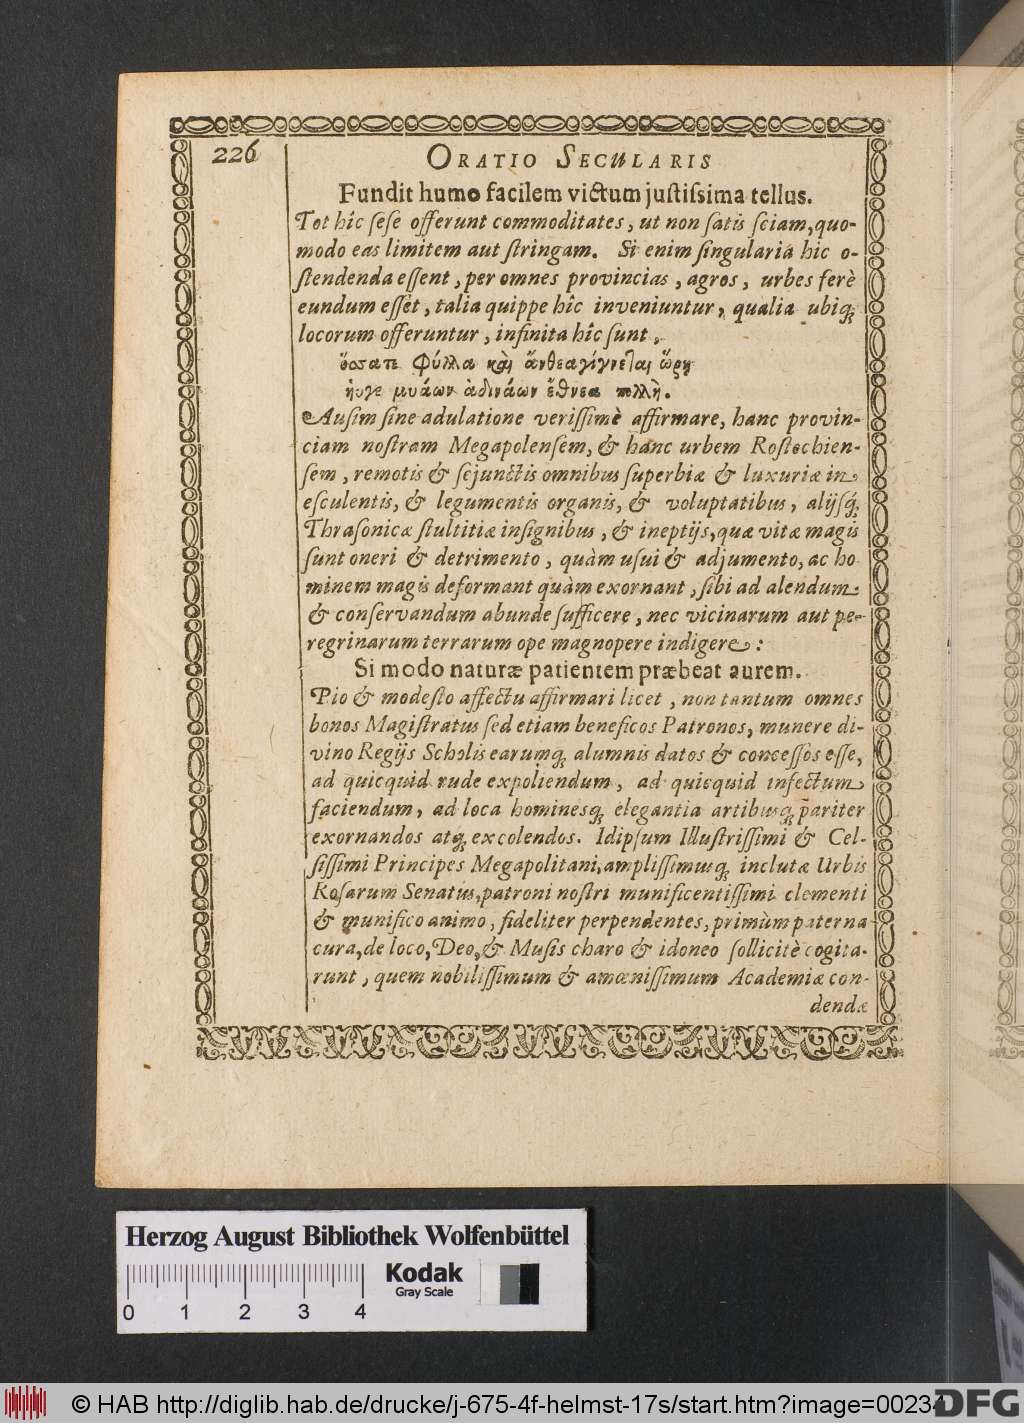 226
ORATIO SECULARIS
Fundit humo facilem victum juſtiſsima tellus.
Tot hîc ſeſe offerunt commoditates, ut non ſatis ſciam, quo-
modo eas limitem aut ſtringam. Si enim ſingularia hic o-
ſtendenda eſſent, per omnes provincias, agros, urbes ferè
eundum eſſet, talia quippe hîc inveniuntur, qualia ubiq́;
locorum offeruntur, infinita hîc ſunt,
ὅσσα τε φύλλα καὶ ἄνθεα γίγνεται ὥρῃ
ἠύτε μυιάων ἀδινάων ἔθνεα πολλὴ.
Auſim ſine adulatione veriſſimè affirmare, hanc provin-
ciam noſtram Megapolenſem, & hanc urbem Roſtochien-
ſem, remotis & ſejunctis omnibus ſuperbiæ & luxuriæ in
eſculentis, & legumentis organis, & voluptatibus, alijsq́;
Thraſonicæ ſtultitiæ inſignibus, & ineptijs, quæ vitæ magis
ſunt oneri & detrimento, quàm uſui & adjumento, ac ho
minem magis deformant quàm exornant, ſibi ad alendum
& conſervandum abunde ſufficere, nec vicinarum aut pe-
regrinarum terrarum ope magnopere indigere:
Si modo naturæ patientem præbeat aurem.
Pio & modeſto affectu affirmari licet, non tantum omnes
bonos Magiſtratus ſed etiam beneficos Patronos, munere di-
vino Regijs Scholis earumq́; alumnis datos & conceſſos eſſe,
ad quicquid rude expoliendum, ad quicquid infectum
faciendum, ad loca hominesq́; elegantia artibusq́; pariter
exornandos atq́; excolendos. Idipſum Illuſtriſſimi & Cel-
ſiſſimi Principes Megapolitani, ampliſſimusq́; inclutæ Urbis
Roſarum Senatus, patroni noſtri munificentiſſimi clementi
& munifico animo, fideliter perpendentes, primùm paterna
cura, de loco, Deo, & Muſis charo & idoneo ſollicitè cogita-
runt, quem nobiliſſimum & amœniſſimum Academiæ con-
dendæ
Herzog August Bibliothek Wolfenbüttel
Kodak
Gray Scale
0 1 2 3 4
© HAB http://diglib.hab.de/drucke/j-675-4f-helmst-17s/start.htm?image=00234
DFG